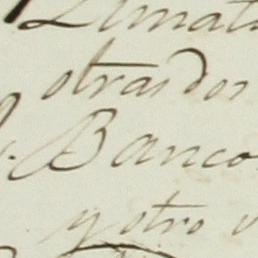 otras dos
Banco
y otro